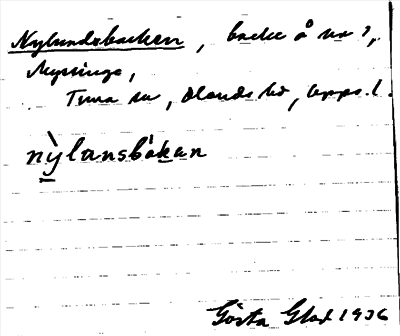 Nylundsbacken, backe å nr 7,
Myssinge,
Tuna sn, Olands hd, Upps. l.
nỳlansbákan
Gösta Glad 1936